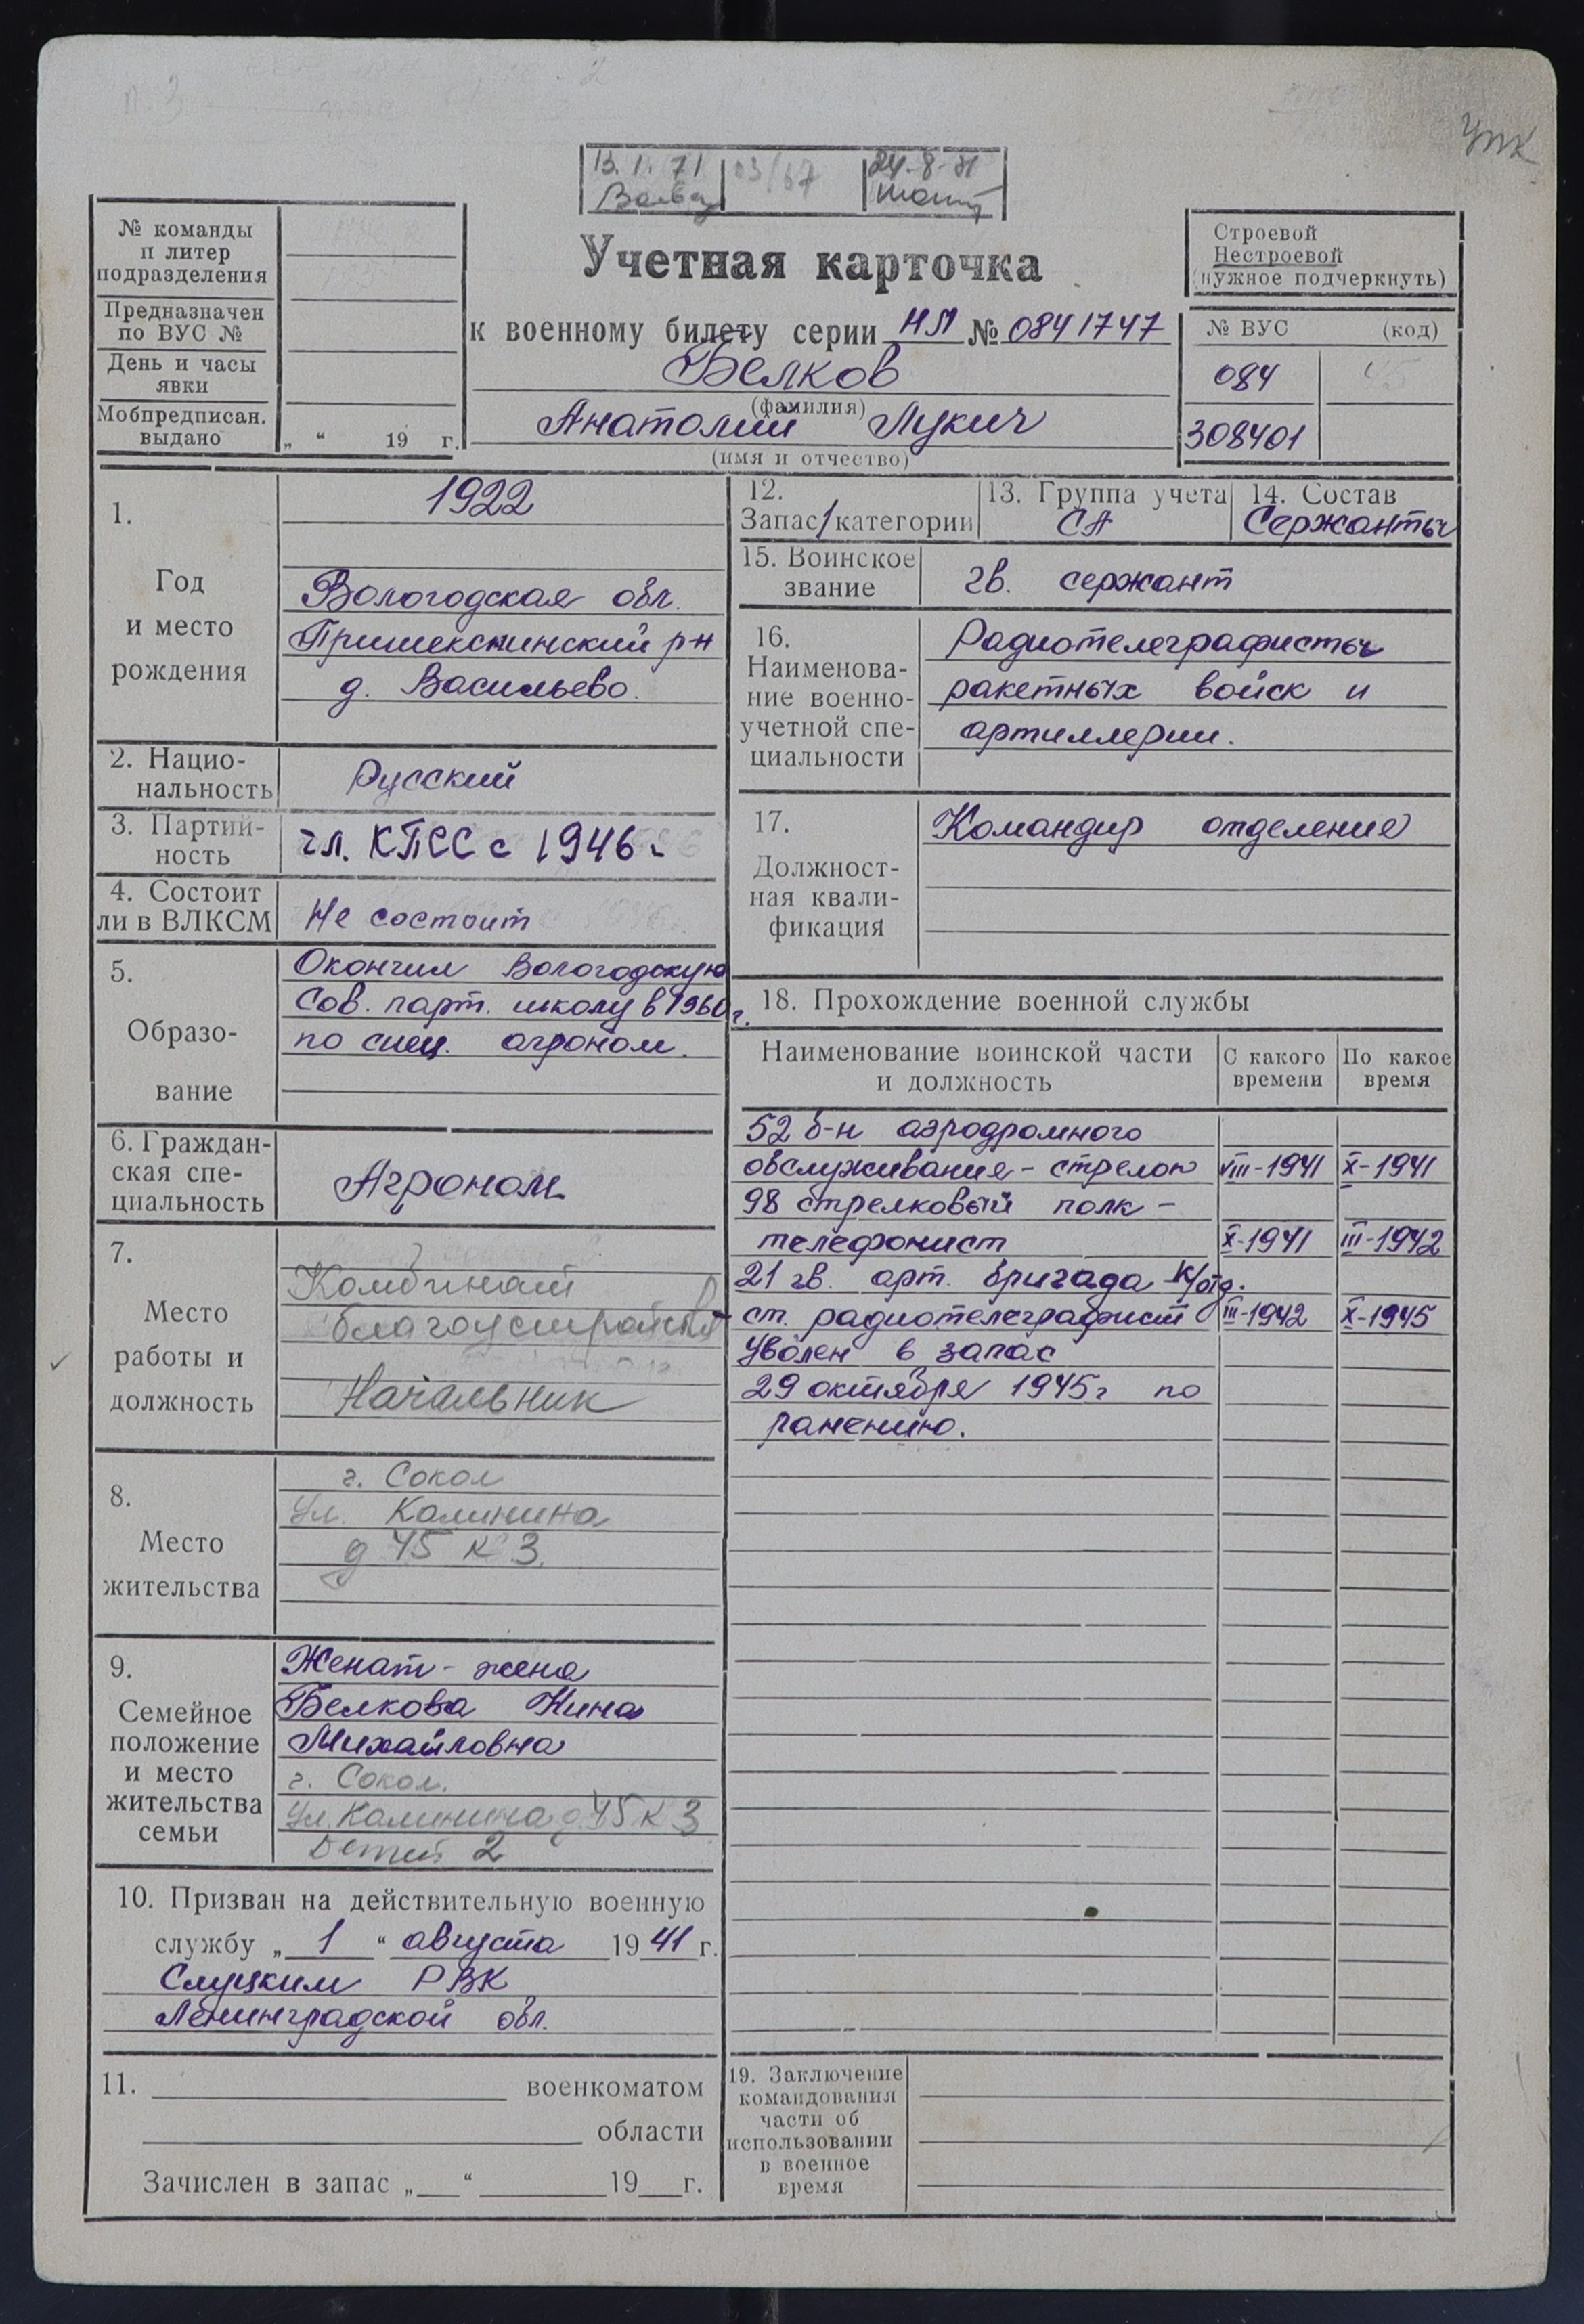 упк
13.1.71
03/67
24-8-71
№ команды
и литер
подразделения
Предназначен
по ВУС №
День и часы
явки
Мобпредписан.
выдано
„ “ 19 г.
Учетная карточка
к военному билету серии НЛ № 0841747
Белков
(фамилия)
Анатолий Лукич
(имя и отчество)
Строевой
Нестроевой
(нужное подчеркнуть)
№ ВУС (код)
084
308401
1.
Год
и место
рождения
1922
Вологодская обл.
Пришекснинский р-н
д. Васильево.
2. Нацио-
нальность
Русский
3. Партий-
ность
чл. КПСС с 1946
4. Состоит
ли в ВЛКСМ
Не состоит
5.
Образо-
вание
Окончил Вологодскую
Сов. парт. школу в 1960 г.
по спец. агроном.
6. Граждан-
ская спе-
циальность
Агроном
7.
Место
работы и
должность
Комбинат
благоустройства
Начальник
8.
Место
жительства
г. Сокол
ул. Калинина
д 45 к 3.
9.
Семейное
положение
и место
жительства
семьи
Женат - жена
Белкова Нина
Михайловна
г. Сокол.
ул. Калинина д. 45 к 3
Детей 2
10. Призван на действительную военную
службу „ 1 “ августа 1941 г.
Слуцким РВК
Ленинградской обл.
11. военкоматом
области
Зачислен в запас „ “ 19 г.
12.
Запас 1 категории
13. Группа учета
СА
14. Состав
Сержанты
15. Воинское
звание
гв. сержант
16.
Наименова-
ние военно-
учетной спе-
циальности
Радиотелеграфисты
ракетных войск и
артиллерии.
17.
Должност-
ная квали-
фикация
Командир отделения
18. Прохождение военной службы
Наименование воинской части
и должность
С какого
времени
По какое
время
52 б-н аэродромного
обслуживания - стрелок VIII-1941 X-1941
98 стрелковый полк -
телефонист X-1941 III-1942
21 гв. арт. бригада к/отд.
ст. радиотелеграфист III-1942 X-1945
Уволен в запас
29 октября 1945 г по
ранению.
19. Заключение
командования
части об
использовании
в военное
время